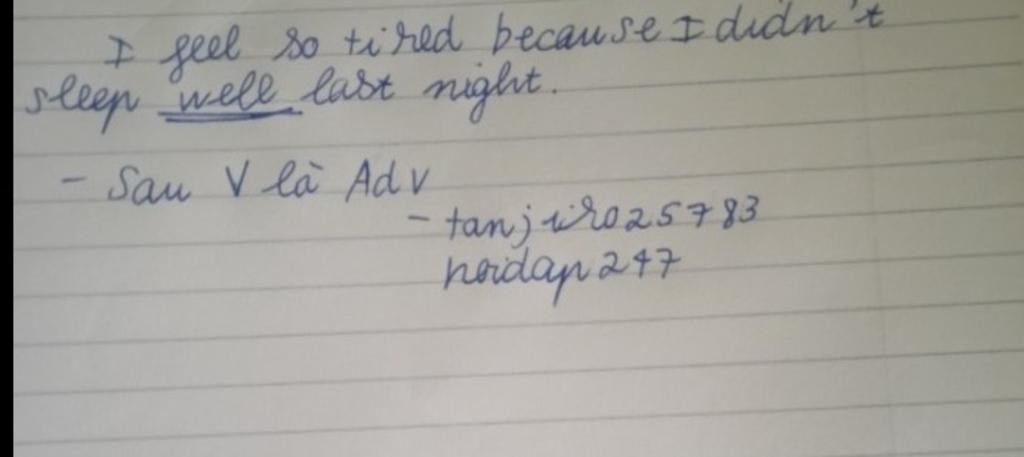 I feel so tired because I didn't
sleep well last night.
- Sau V là Adv
- tanjiro25783
hoidap247